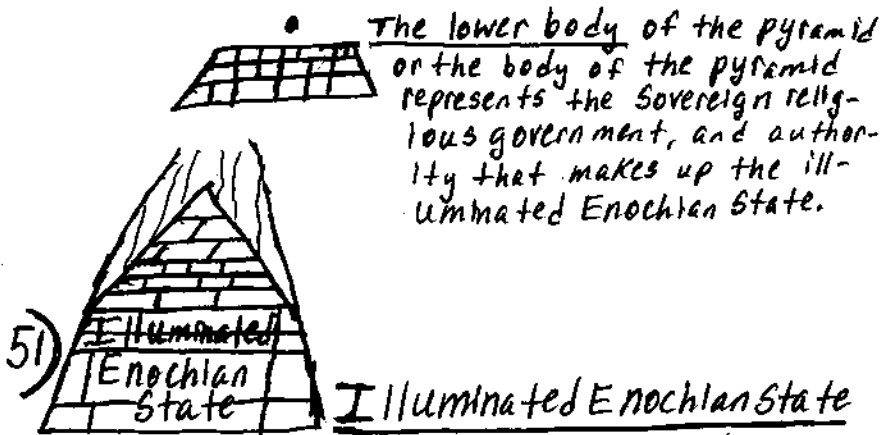 The lower body of the pyramid
or the body of the pyramid
represents the Sovereign relig-
ious government, and author-
ity that makes up the ill-
uminated Enochian State.
51)
Illuminated
Enochian
State
Illuminated Enochian State